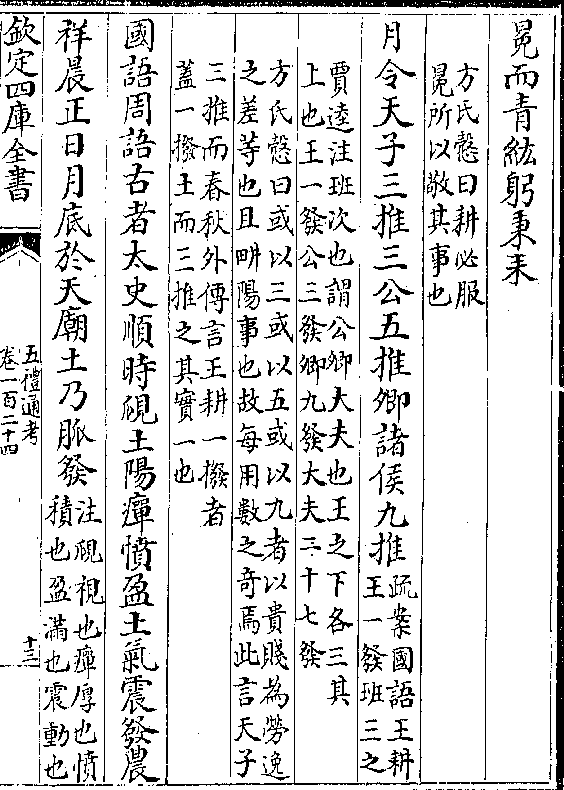 冕而青紘躬秉耒
方氏慤曰耕必服
冕所以敬其事也
月令天子三推三公五推卿諸侯九推
疏案國語王耕
王一發班三之
賈逵注班次也謂公卿大夫也王之下各三其
上也王一發公三發卿九發大夫二十七發
方氏慤曰或以三或以五或以九者以貴賤為勞逸
之差等也且畊陽事也故每用數之奇焉此言天子
三推而春秋外傳言王耕一撥者
蓋一撥土而三推之其實一也
國語周語古者太史順時覛土陽癉憤盈土氣震發農
祥晨正日月底於天廟土乃脈發
注覛視也癉厚也憤
積也盈滿也震動也
欽定四庫全書
五禮通考
卷一百二十四
十三